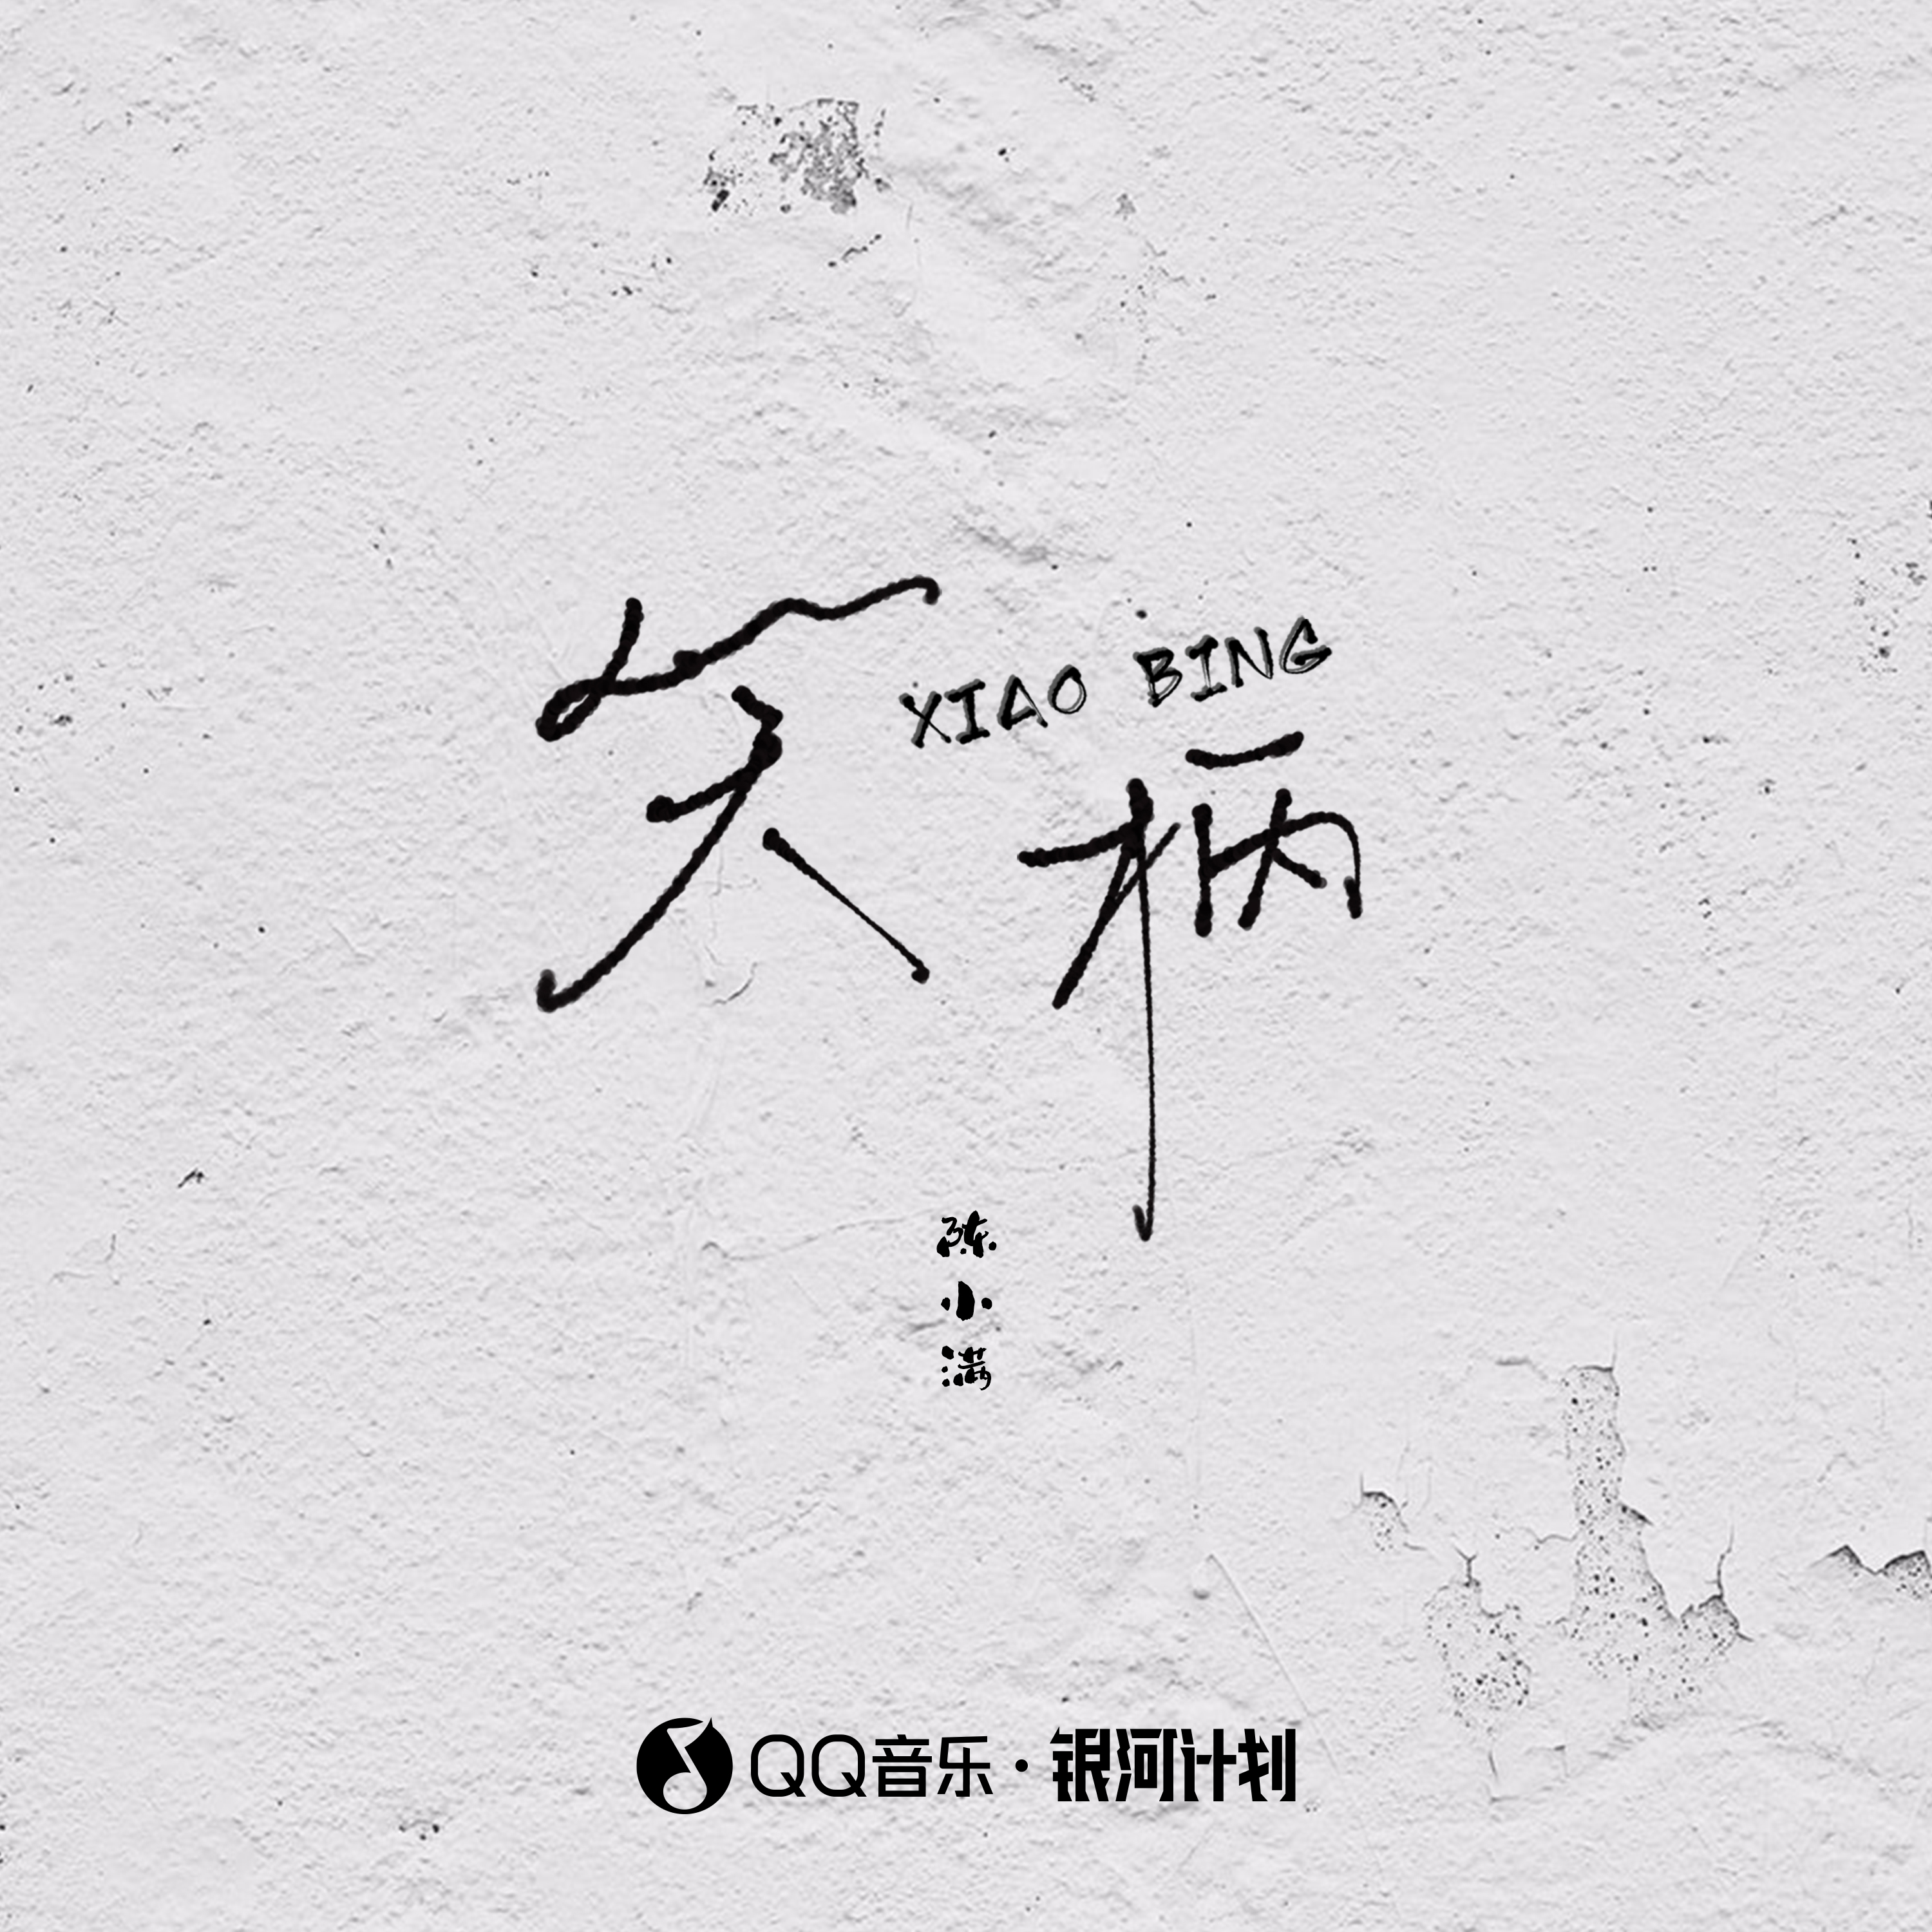 笑柄
XIAO BING
陈小满
QQ音乐·银河计划